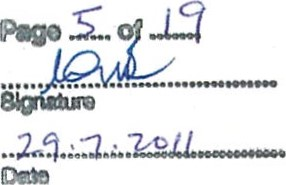 Page 5 of 19
Signature
29.7.2011
Date